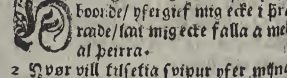 boorde/ yfergief mig ecke i þra
rade/ laat mig ecke falla a me
al þeirra.
2 Hvør vill tilsetia svipur yfer mijna